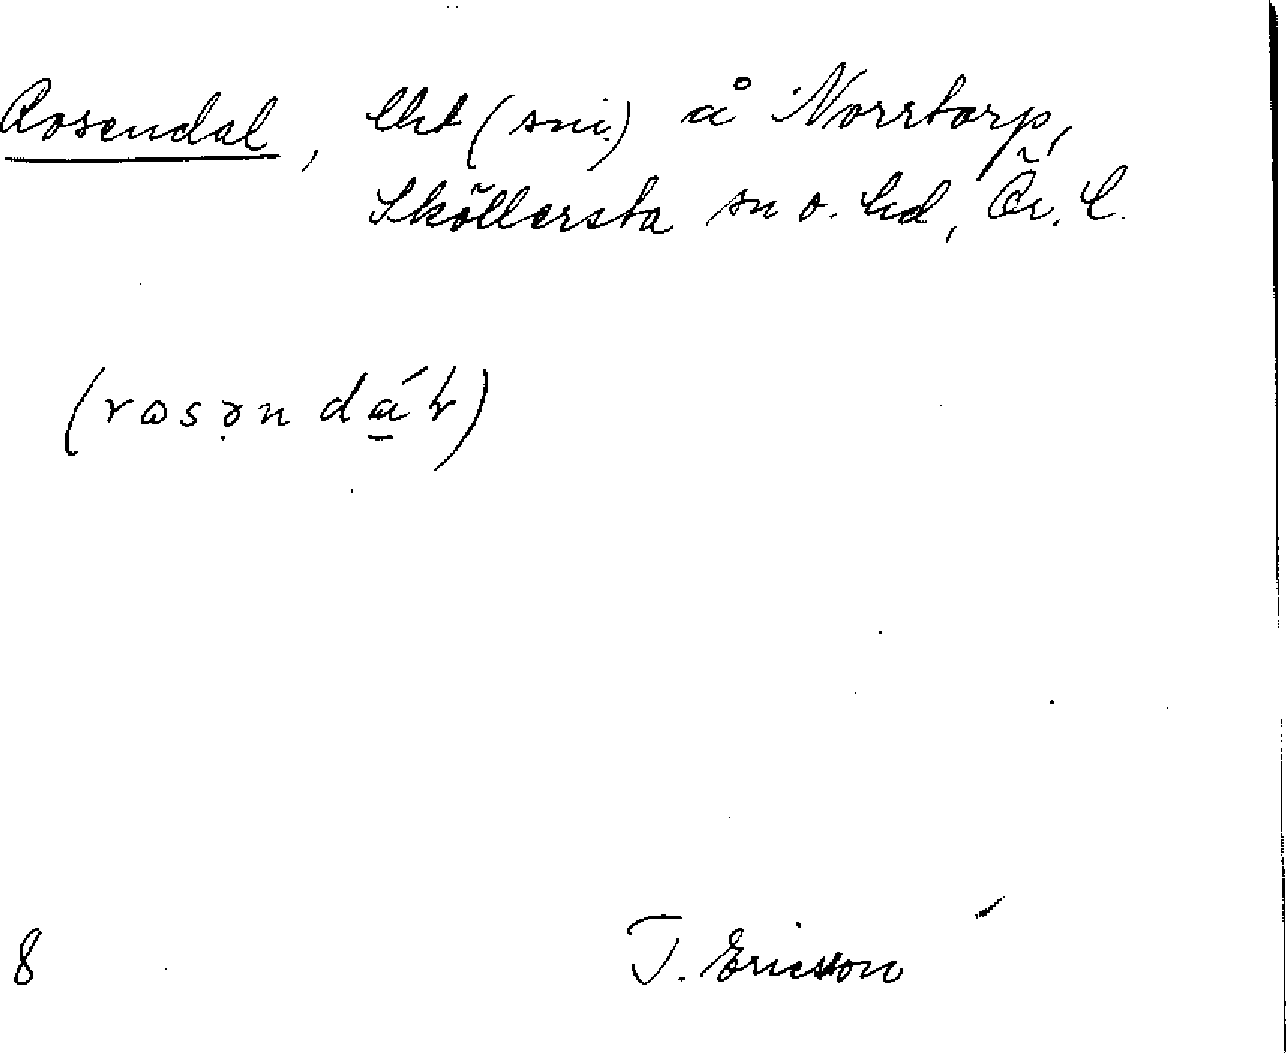 Rosendal, lht (sni) å Norrtorp,
Sköllersta sn o. hd, Ör. l.
(rɷsən dáɫ)
8 T. Ericsson